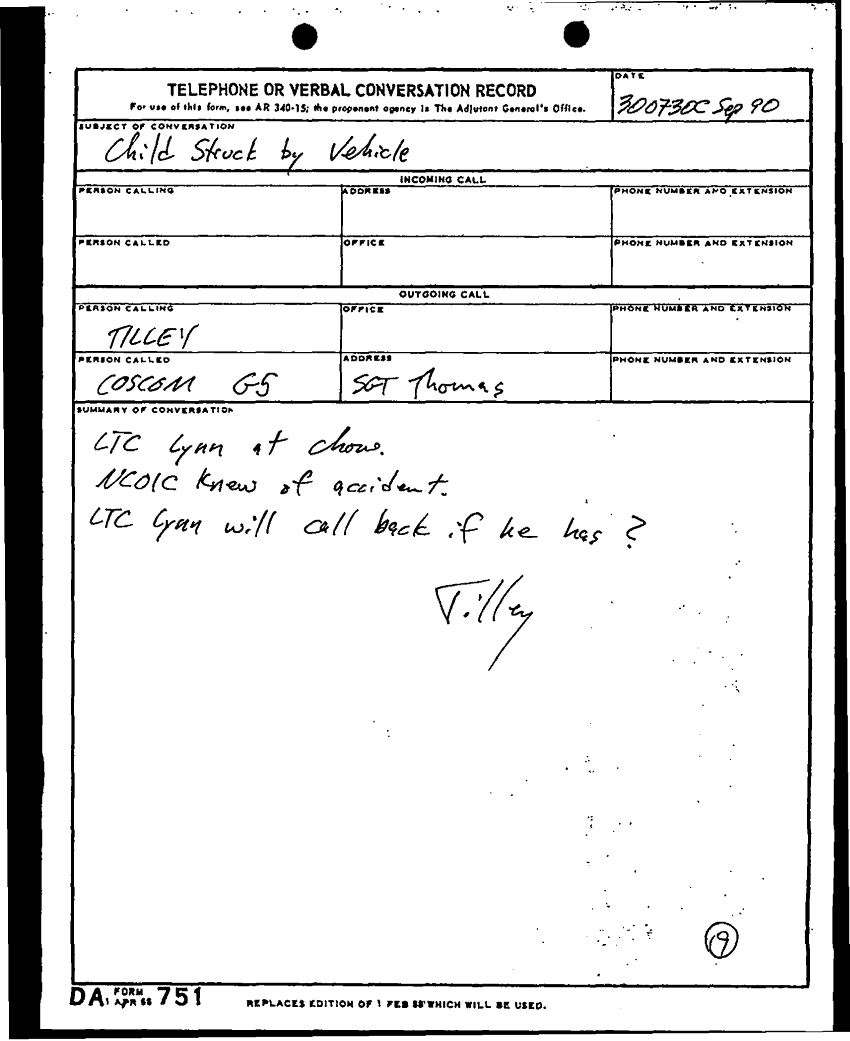 DATE
TELEPHONE OR VERBAL CONVERSATION RECORD
For use of this form, see AR 340-15; the proponent agency is The Adjutant General's Office.
300730C Sep 90
SUBJECT OF CONVERSATION
Child Struck by Vehicle
INCOMING CALL
PERSON CALLING ADDRESS PHONE NUMBER AND EXTENSION
PERSON CALLED OFFICE PHONE NUMBER AND EXTENSION
OUTGOING CALL
PERSON CALLING OFFICE PHONE NUMBER AND EXTENSION
TILLEY
PERSON CALLED ADDRESS PHONE NUMBER AND EXTENSION
COSCOM G5 SGT Thomas
SUMMARY OF CONVERSATION
LTC Lynn at chow.
NCOIC knew of accident.
LTC Lynn will call back if he has ?
Tilley
19
DA FORM 1 APR 66 751 REPLACES EDITION OF 1 FEB 58 WHICH WILL BE USED.